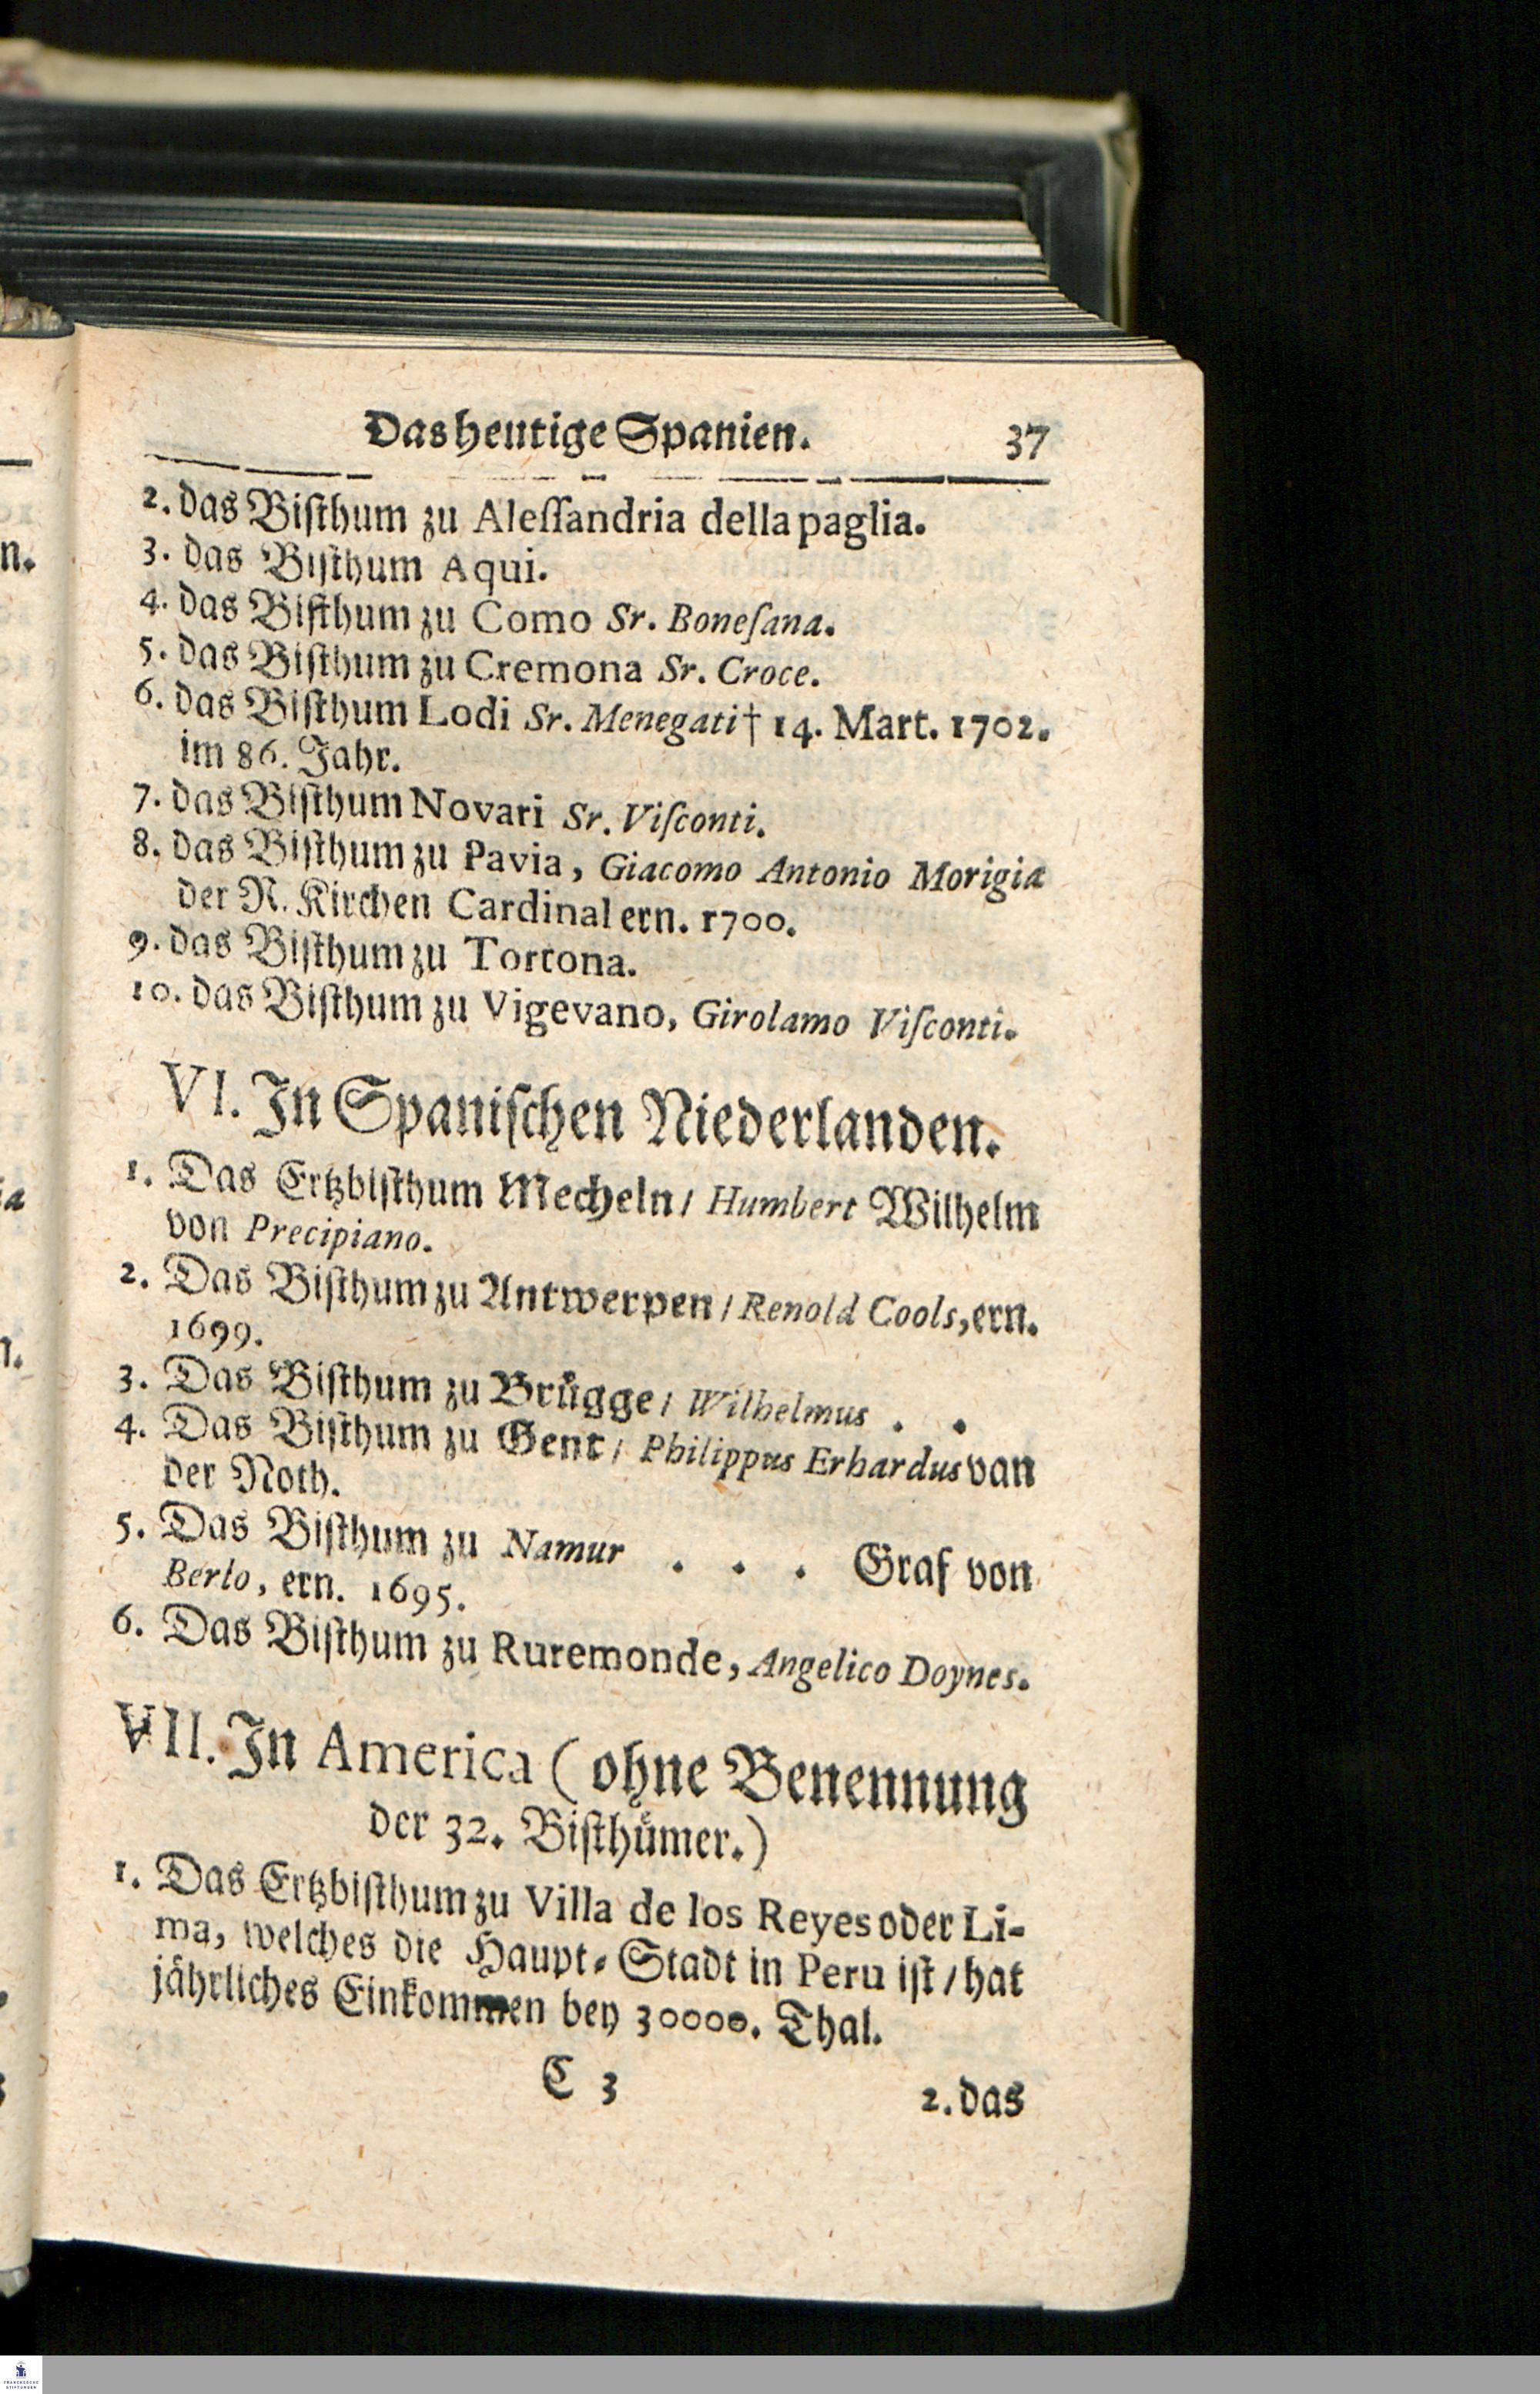 Das heutige Spanien. 37
2. das Biſthum zu Aleſſandria della paglia.
3. das Biſthum Aqui.
4. das Biſthum zu Como Sr. Boneſana.
5. das Biſthum zu Cremona Sr. Croce.
6. das Biſthum Lodi Sr. Menegati † 14. Mart. 1702.
im 86. Jahr.
7. das Biſthum Novari Sr. Viſconti.
8. das Biſthum zu Pavia, Giacomo Antonio Morigia
der R. Kirchen Cardinal ern. 1700.
9. das Biſthum zu Tortona.
10. das Biſthum zu Vigevano, Girolamo Viſconti.
VI. In Spaniſchen Niederlanden.
1. Das Ertzbiſthum Mecheln / Humbert Wilhelm
von Precipiano.
2. Das Biſthum zu Antwerpen / Renold Cools, ern.
1699.
3. Das Biſthum zu Bruͤgge / Wilhelmus . .
4. Das Biſthum zu Gent / Philippus Erhardus van
der Noth.
5. Das Biſthum zu Namur . . . Graf von
Berlo, ern. 1695.
6. Das Biſthum zu Ruremonde, Angelico Doynes.
VII. In America (ohne Benennung
der 32. Biſthuͤmer.)
1. Das Ertzbiſthum zu Villa de los Reyes oder Li-
ma, welches die Haupt-Stadt in Peru iſt / hat
jaͤhrliches Einkommen bey 30000. Thal.
C 3 2. das
FRANCKESCHE
STIFTUNGEN